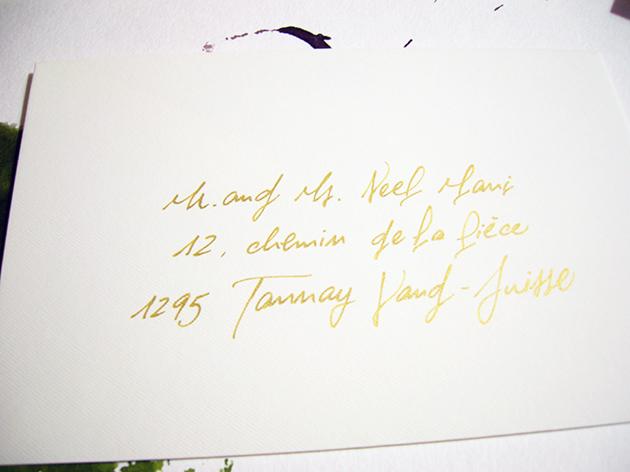 M. and M. Neel Mani
12, chemin de la pièce
1295 Tannay Vaud - Suisse